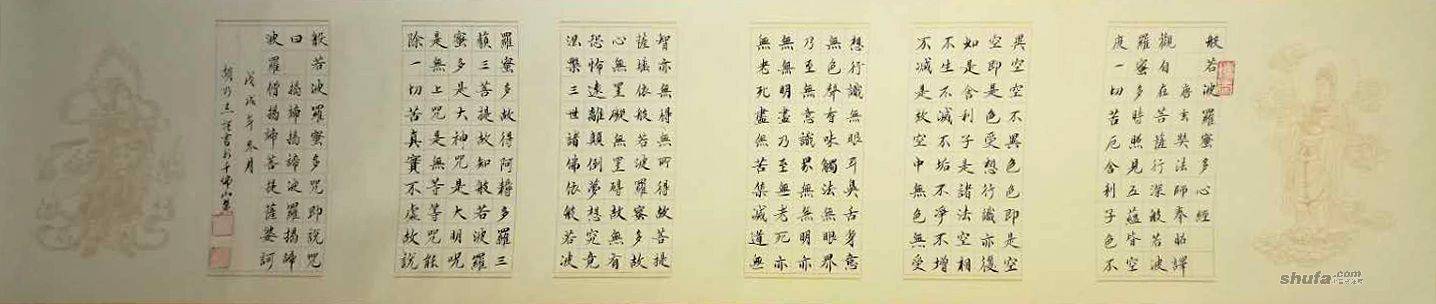 般若波羅蜜多心經
唐玄奘法師奉詔譯
觀自在菩薩行深般若波
羅蜜多時照見五蘊皆空
度一切苦厄舍利子色不
異空空不異色色即是空
空即是色受想行識亦復
如是舍利子是諸法空相
不生不滅不垢不淨不增
不減是故空中無色無受
想行識無眼耳鼻舌身意
無色聲香味觸法無眼界
乃至無意識界無無明亦
無無明盡乃至無老死亦
無老死盡無苦集滅道無
智亦無得無所得故菩提
薩埵依般若波羅蜜多故
心無罣礙無罣礙故無有
恐怖遠離顛倒夢想究竟
涅槃三世諸佛依般若波
羅蜜多故得阿耨多羅三
藐三菩提故知般若波羅
蜜多是大神咒是大明呪
是無上咒是無等等咒能
除一切苦真實不虛故說
般若波羅蜜多咒即說咒
曰 揭諦揭諦波羅揭諦
波羅僧揭諦菩提薩婆訶
戊戌年冬月
謹書於千佛山
shufa.com